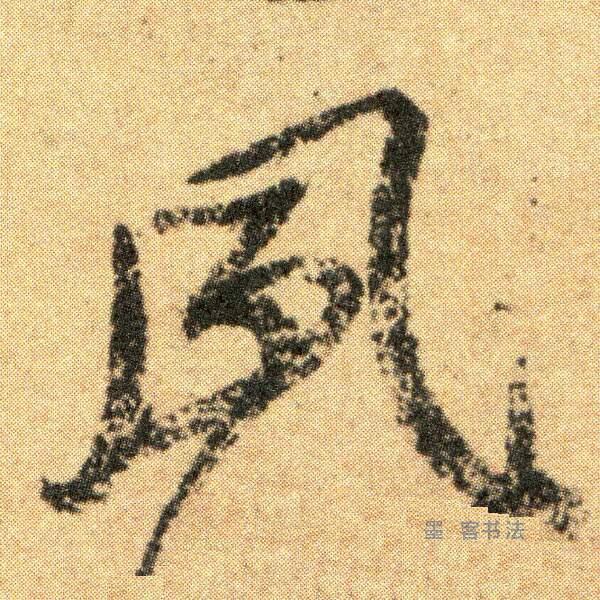 風
墨 客书法